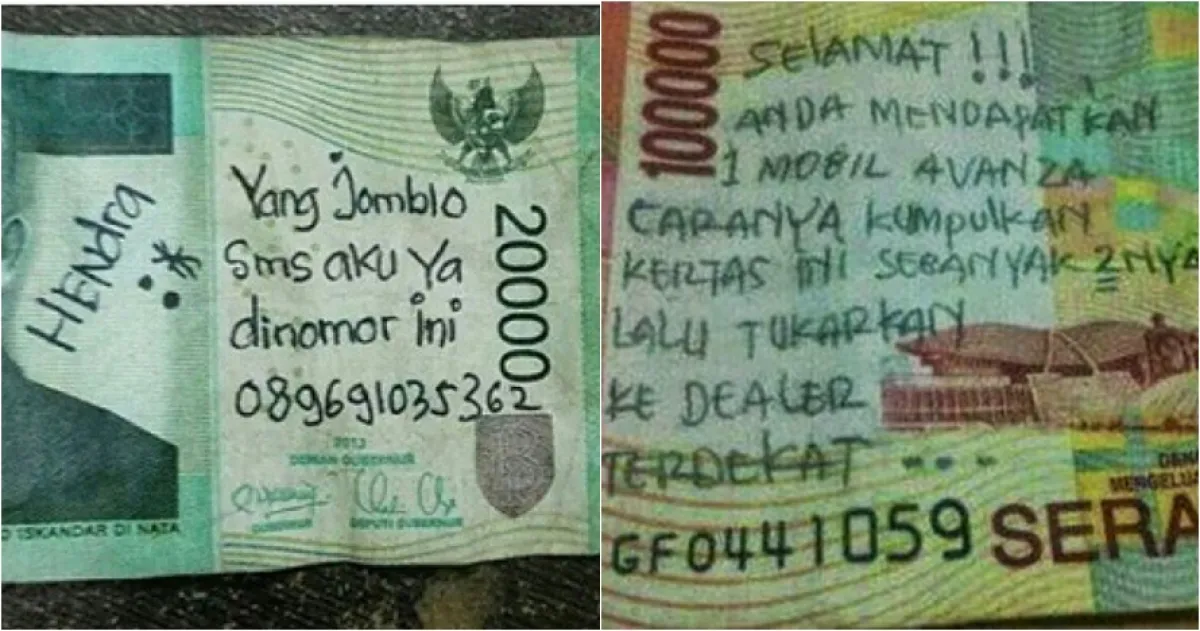 HENDra :*
Yang Jomblo
Sms aku Ya
dinomor ini
089691035362
20000
2013
DEWAN GUBERNUR
GUBERNUR
DEPUTI GUBERNUR
O ISKANDAR DI NATA
100000
SELAMAT !!!
ANDA MENDAPATKAN
1 MOBIL AVANZA
CARANYA KUMPULKAN
KERTAS INI SEBANYAK 2NYA
LALU TUKARKAN
KE DEALER
TERDEKAT ---
DEW
MENGELUA
GF0441059
SERA